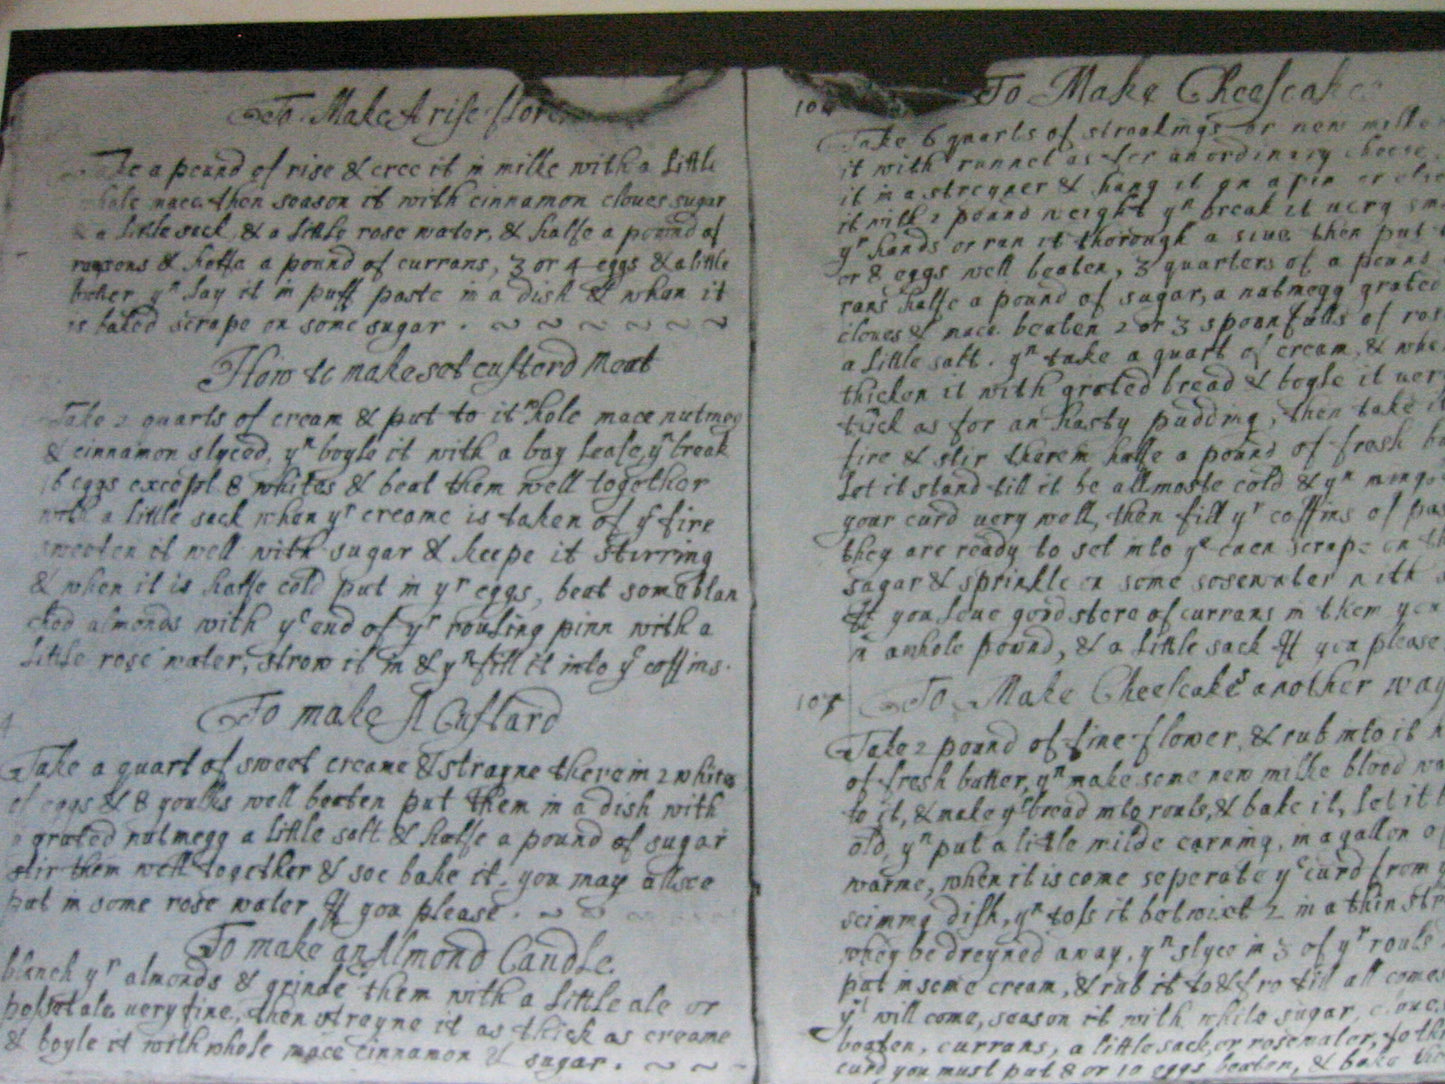 To Make A rise flore
Take a pound of rise & cree it in milke with a little
whole mace then season it with cinnamon cloues sugar
& a little sack & a little rose water, & halfe a pound of
reasons & halfe a pound of currans, 3 or 4 eggs & a little
butter yn lay it in puff paste in a dish & when it
is baked scrape on some sugar . ~ ~ ~ ~ ~ ~
How to make set custerd Meat
Take 2 quarts of cream & put to it whole mace nutmeg
& cinnamon slyced, yn boyle it with a bay leafe, yn break
16 eggs except 8 whites & beat them well together
with a little sack when yr creame is taken of ye fire
sweeten it well with sugar & keepe it stirring
& when it is halfe cold put in yr eggs, beat some blan
ched almonds with ye end of yr rouling pinn with a
little rose water, strow it in & yn fill it into ye coffins.
To make A Custard
Take a quart of sweet creame & strayne therein 2 whites
of eggs & 8 youlks well beaten put them in a dish with
a grated nutmegg a little salt & halfe a pound of sugar
stir them well together & soe bake it, you may allsoe
put in some rose water If you please . ~ ~
To make an Almond Caudle.
blanch yr almonds & grinde them with a little ale or
possetale uery fine, then streyne it as thick as creame
& boyle it with whole mace cinnamon & sugar . ~ ~ ~
To Make Cheescakes
Take 6 quarts of stroakings or new milke
it with runnet as for an ordinary cheese,
it in a streyner & hang it on a pin or else
it with 2 pound weight yn break it uery
yr hands or run it thorough a siue, then put
or 8 eggs well beaten, 3 quarters of a pound
rans halfe a pound of sugar, a nutmegg grated
cloues & mace beaten 2 or 3 spoonfulls of
a little salt . yn take a quart of cream, & when
thicken it with grated bread & boyle it uery
thick as for an hasty pudding, then take it
fire & stir therein halfe a pound of fresh
Let it stand till it be allmoste cold & yn
your curd uery well, then fill yr coffins of
they are ready to set into ye ouen scrape on
sugar & sprinkle on some rosewater with
If you loue good store of currans in them you
in awhole pound, & a little sack If you please
105 To Make Cheescakes another way
Take 2 pound of fine flower, & rub into it
of fresh butter, yn make some new milke blood
to it, & make yr bread into rouls, & bake it, let it
old, yn put a little milde earning, in a gallon of
warme, when it is come seperate ye curd from
scimmg dish, yn toss it betwixt 2 in a thin
whey be dreyned away, yn slyce in 3 of yr rouls
put in some cream, & rub it to & fro till all
yt will come, season it with white sugar,
beaten, currans, a little sack, or rosewater, to
curd you must put 8 or 10 eggs beaten, & bake